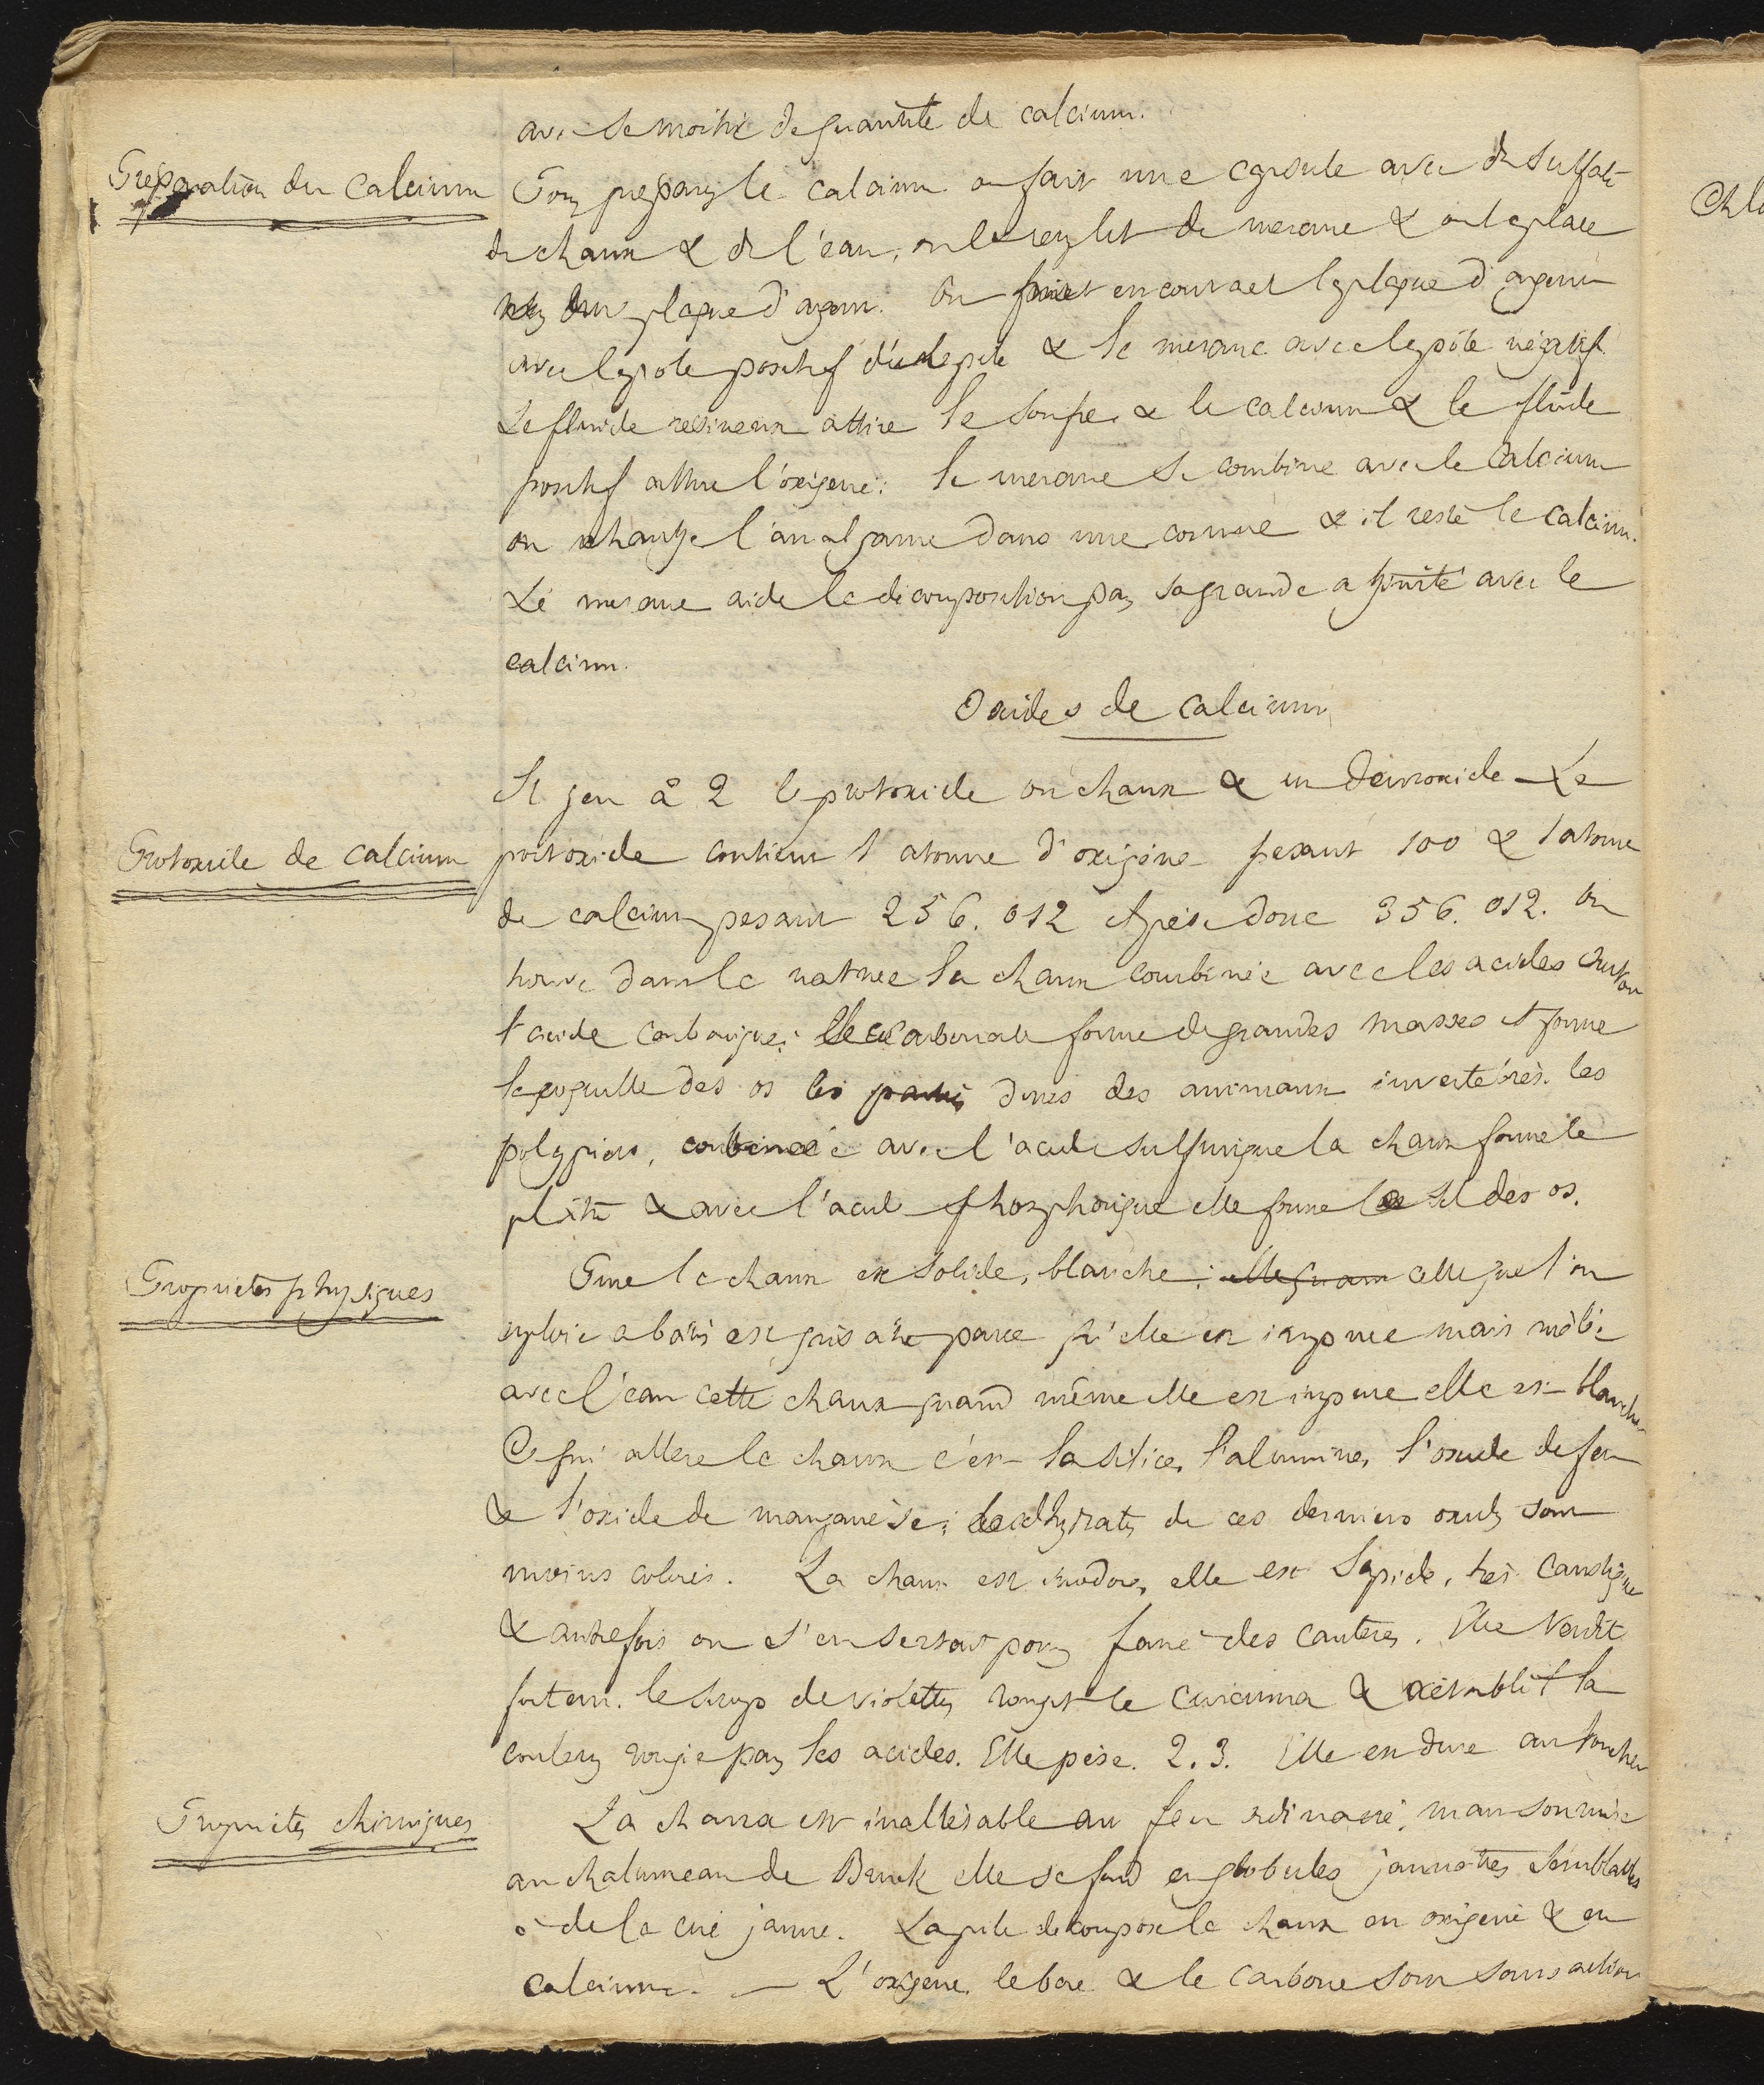 avec la moitié de quantité de calcium.
Préparation du Calcium
Pour préparer le calcium on fait une capsule avec du sulfate
de chaux & de l'eau, on la remplit de mercure & on la place
sur une plaque d'argent. On met en contact la plaque d'argent
avec le pole positif d'une pile & le mercure avec le pôle négatif.
Le fluide résineux attire le soufre & le calcium & le fluide
positif attire l'oxigene: le mercure se combine avec le Calcium
on chauffe l'amalgame dans une cornue & il reste le calcium.
Le mercure aide la décomposition par sa grande afinité avec le
calcium.
Oxides de calcium
Il y en a 2 le protoxide ou chaux & un deutoxide. Le
Protoxide de calcium
protoxide contient 1 atome d'oxigène pesant 100 & 1 atome
de calcium pesant 256.012 il pèse donc 356.012. On
trouve dans la nature la chaux combinée avec les acides surtout
l'acide carbonique; le carbonate forme de grandes masses il forme
la coquille des os les parties dures des animaux invertébrés, les
polypiers, combinée avec l'acide sulfurique la chaux forme le
plâtre & avec l'acide phosphorique elle forme le sel des os.
Propriétés physiques
Pure la chaux est solide, blanche; celle que l'on
emploie a batir est grisatre parce qu'elle est impure mais mêlée
avec l'eau cette chaux quand même elle est impure elle est blanche
Ce qui altere la chaux c'est la silice, l'alumine, l'oxide de fer
& l'oxide de manganèse; les hydrates de ces derniers oxides sont
moins colorés. La chaux est inodore, elle est sapide, très caustique
& autrefois on s'en servait pour faire des cautères. Elle verdit
fortem. le sirop de violettes rougit le curcuma & rétablit la
couleur rougie par les acides. Elle pèse 2.3. Elle est dure au toucher
Propriétés chimiques
La chaux est inaltérable au feu ordinaire, mais soumise
au chalumeau de Brook elle se fond en globules jaunatres semblables
à de la cire jaune. La pile décompose la chaux en oxigène & en
calcium. — L'oxigene, le bore & le carbone sont sans action
Chlo